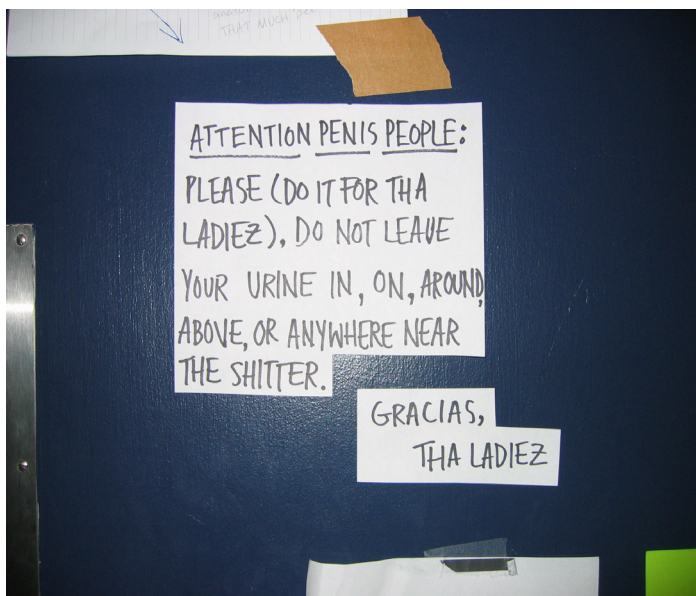 THAT MUCH
ATTENTION PENIS PEOPLE:
PLEASE (DO IT FOR THA
LADIEZ), DO NOT LEAVE
YOUR URINE IN, ON, AROUND,
ABOVE, OR ANYWHERE NEAR
THE SHITTER.
GRACIAS,
THA LADIEZ